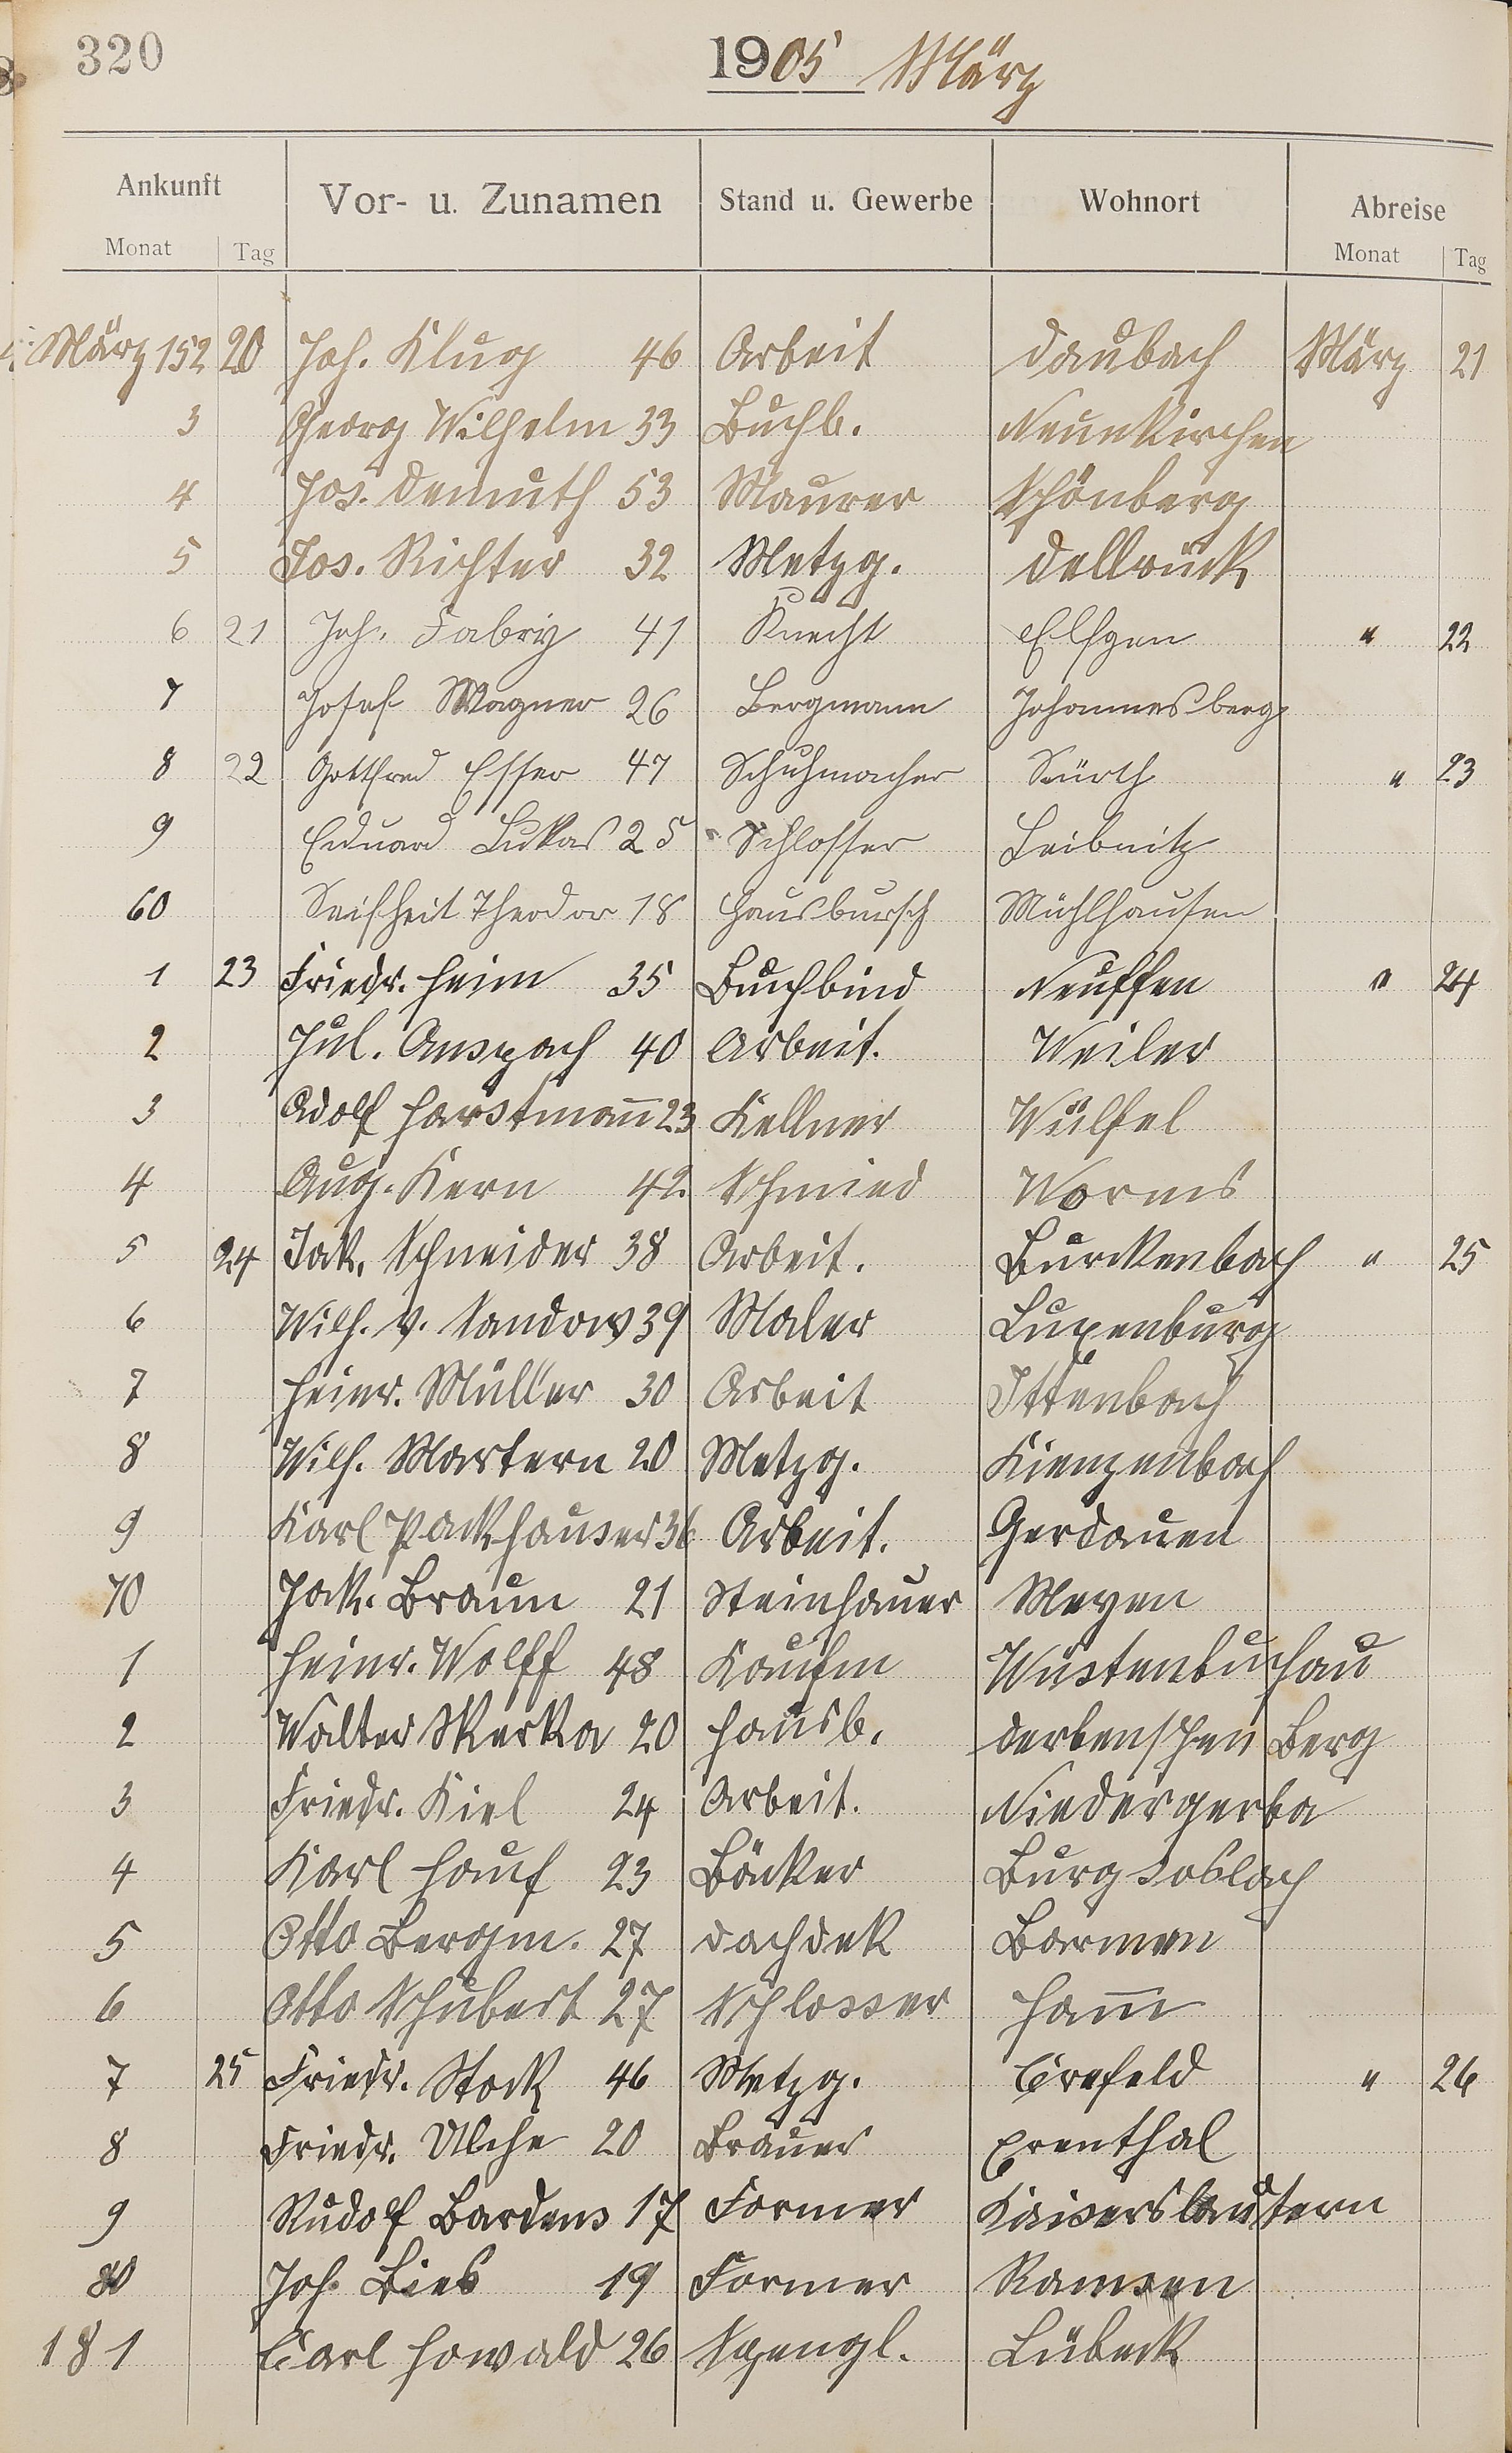 320
1905 März
Ankunft Vor- u. Zunamen Stand u. Gewerbe Wohnort Abreise
Monat Tag Monat Tag
März 152 20 Joh. Klug 46 Arbeit Daubach März 21
3 Georg Wilhelm 33 Buchb. Neunkirchen
4 Jos. Demuth 53 Maurer Schönberg
5 Jos. Richter 32 Metzg. Dellbrück
6 21 Joh. Fabry 41 Knecht Elsgen " 22
7 Josef Wagner 26 Bergmann Johannesberg
8 22 Gottfred Esser 47 Schuhmacher Sürth " 23
9 Eduard Lukas 25 Schlosser Leibnitz
60 Seifheit Theodor 18 Hausbursch Mühlhausen
1 23 Friedr. Heim 35 Buchbind Neuffen " 24
2 Jul. Anspach 40 Arbeit. Weiler
3 Adolf Horstmann̄ 23 Kellner Wülfel
4 Aug. Kern 42 Schmied Worms
5 24 Jak. Schneider 38 Arbeit. Burckenbach " 25
6 Wilh. v. Sandow 39 Maler Luxenburg
7 Heinr. Müller 30 Arbeit Ittenbach
8 Wilh. Martern 20 Metzg. Kienzenbach
9 Karl Packhauser 36 Arbeit. Gerdauen
70 Jak. Braun 21 Steinhauer Meyen
1 Heinr. Wolff 48 Kaufm Wüstenbuchau
2 Walter Skerka 20 Hausb. Derbenschen Berg
3 Friedr. Kiel 24 Arbeit. Niedergerba
4 Karl Hauf 23 Bäcker
5 Otto Bergm. 27 Dachdek Barmen
6 Otto Schubert 27 Schlosser Ham̄
7 25 Friedr. Stock 46 Metzg. Crefeld " 26
8 Friedr. Ulche 20 Brauer Erenthal
9 Rudolf Bardens 17 Former Kaiserslautern
80 Joh. Bies 19 Former Ramsen
181 Carl Howald 26 Spengl. Lübeck